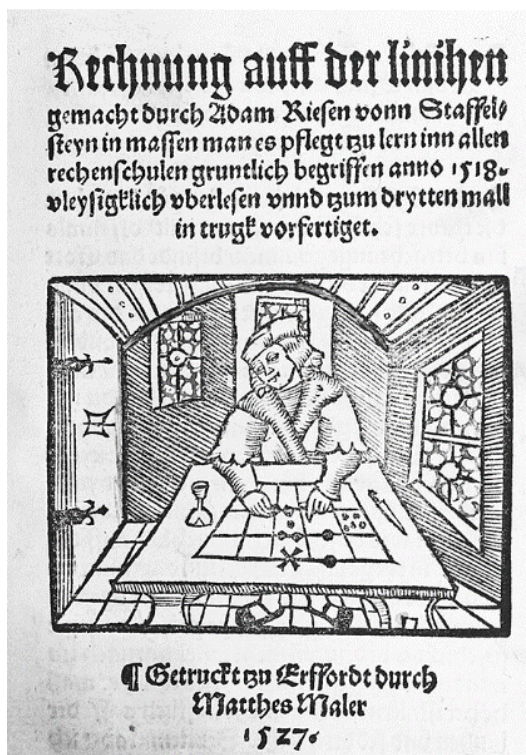 Rechnung auff der linihen
gemacht durch Adam Riesen vonn Staffel-
steyn in massen man es pflegt tzu lern inn allen
rechenschulen gruntlich begriffen anno 1518.
vleysigklich vberlesen vnnd tzum drytten mall
in trugk vorfertiget.
¶ Getruckt tzu Erffordt durch
Matthes Maler
1527.